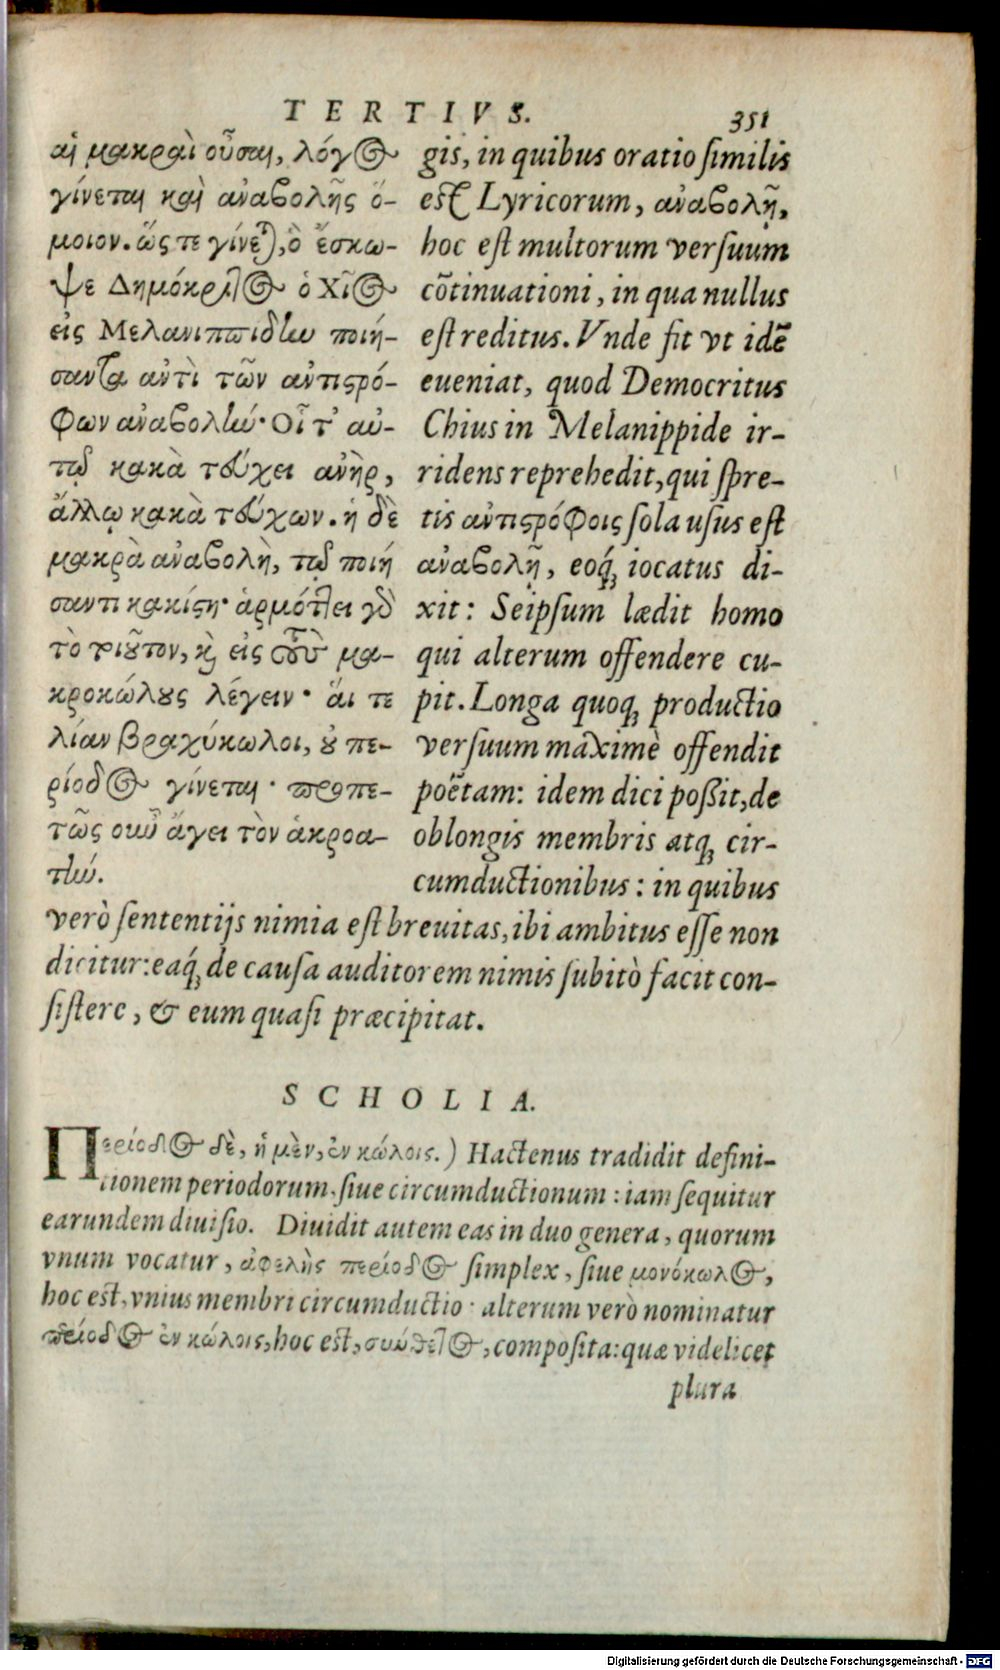 TERTIVS. 351
αἱ μακραὶ οὖσαι, λόγος
γίνεται καὶ ἀναβολῆς ὅ-
μοιον. ὥς τε γίνεται, ὃ ἔσκω-
ψε Δημόκριτος ὁ Χῖος
εἰς Μελανιππίδην ποιή-
σαντα ἀντὶ τῶν ἀντιστρό-
φων ἀναβολήν· Οἷ τ' αὐ-
τῷ κακὰ τεύχει ἀνὴρ,
ἄλλῳ κακὰ τεύχων. ἡ δὲ
μακρὰ ἀναβολὴ, τῷ ποιή
σαντι κακίστη· ἁρμόττει γὸ
τὸ τοιοῦτον, καὶ εἰς τοὺς μα-
κροκώλους λέγειν· ἅι τε
λίαν βραχύκωλοι, οὐ πε-
ρίοδος γίνεται· προπε-
τῶς οὖν ἄγει τὸν ἀκροα-
τήν.
gis, in quibus oratio similis
est Lyricorum, ἀναβολῇ,
hoc est multorum versuum
cōtinuationi, in qua nullus
est reditus. Vnde fit vt idē
eueniat, quod Democritus
Chius in Melanippide ir-
ridens reprehēdit, qui spre-
tis ἀντιστρόφοις sola usus est
ἀναβολῇ, eoq́; iocatus di-
xit: Seipsum lædit homo
qui alterum offendere cu-
pit. Longa quoq; productio
versuum maximè offendit
poëtam: idem dici poßit, de
oblongis membris atq; cir-
cumductionibus: in quibus
verò sententijs nimia est breuitas, ibi ambitus esse non
dicitur: eaq́; de causa auditorem nimis subitò facit con-
sistere, & eum quasi præcipitat.
SCHOLIA.
Περίοδος δὲ, ἡ μὲν, ἐν κώλοις.) Hactenus tradidit defini-
tionem periodorum, siue circumductionum: iam sequitur
earundem diuisio. Diuidit autem eas in duo genera, quorum
vnum vocatur, ἀφελὴς περίοδος simplex, siue μονόκωλος,
hoc est, vnius membri circumductio: alterum verò nominatur
περίοδος ἐν κώλοις, hoc est, σύνθετος, composita: quæ videlicet
plura
Digitalisierung gefördert durch die Deutsche Forschungsgemeinschaft - DFG